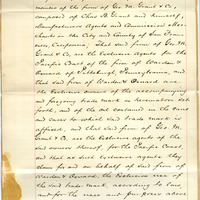 member of the firm of Geo. M.
Grant & Co.,
composed of Chas B. Grant and himself,
Manufacturers Agents and Commercial Mer-
chants in the City and County of San Fran-
cisco, California; That said firm of Geo.
M. Grant & Co. are the Exclusive Agents for the
Pacific Coast of the firm of Warden &
Oxnard of Pittsburgh, Pennsylvania, and
that said firm of Warden & Oxnard are
the Exclusive owners of the accompanying
and foregoing trade mark as hereinafter set
forth, and of the oil contained in the cans
and cases to which said trade mark is
affixed, and that said firm of Geo. M.
Grant & Co. are the agents of the said
owners thereof, for the Pacific Coast,
and that as such Exclusive agents they
claim for and on behalf of said firm of
Warden & Oxnard, the Exclusive use of
the said trade mark, according to law
and for the uses and purposes above